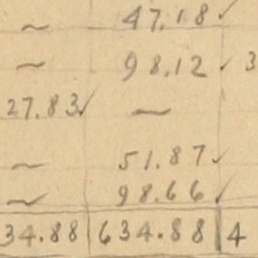 ~ 47.18 ✓
~ 98.12 ✓ 3
27.83 ✓ ~
~ 51.87 ✓
~ 98.66 ✓
34.88 634.88 4